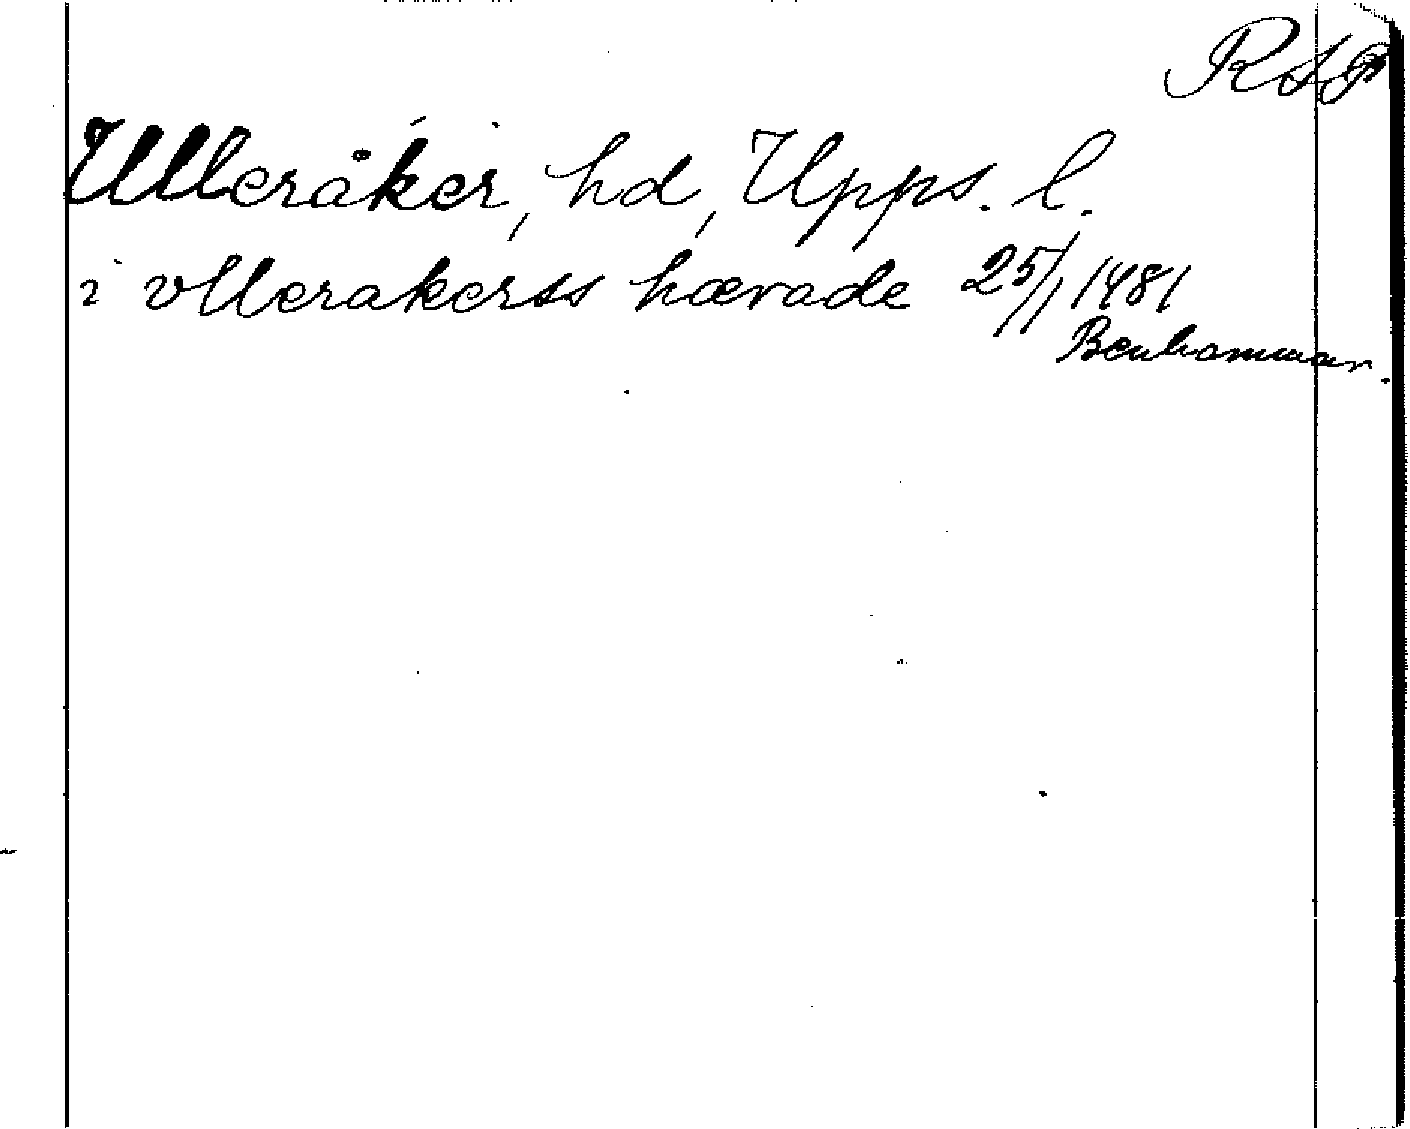 RAP
Ulleråker, hd, Upps. l.
i vllerakerss hærade 25/1 1481
Benhammar.